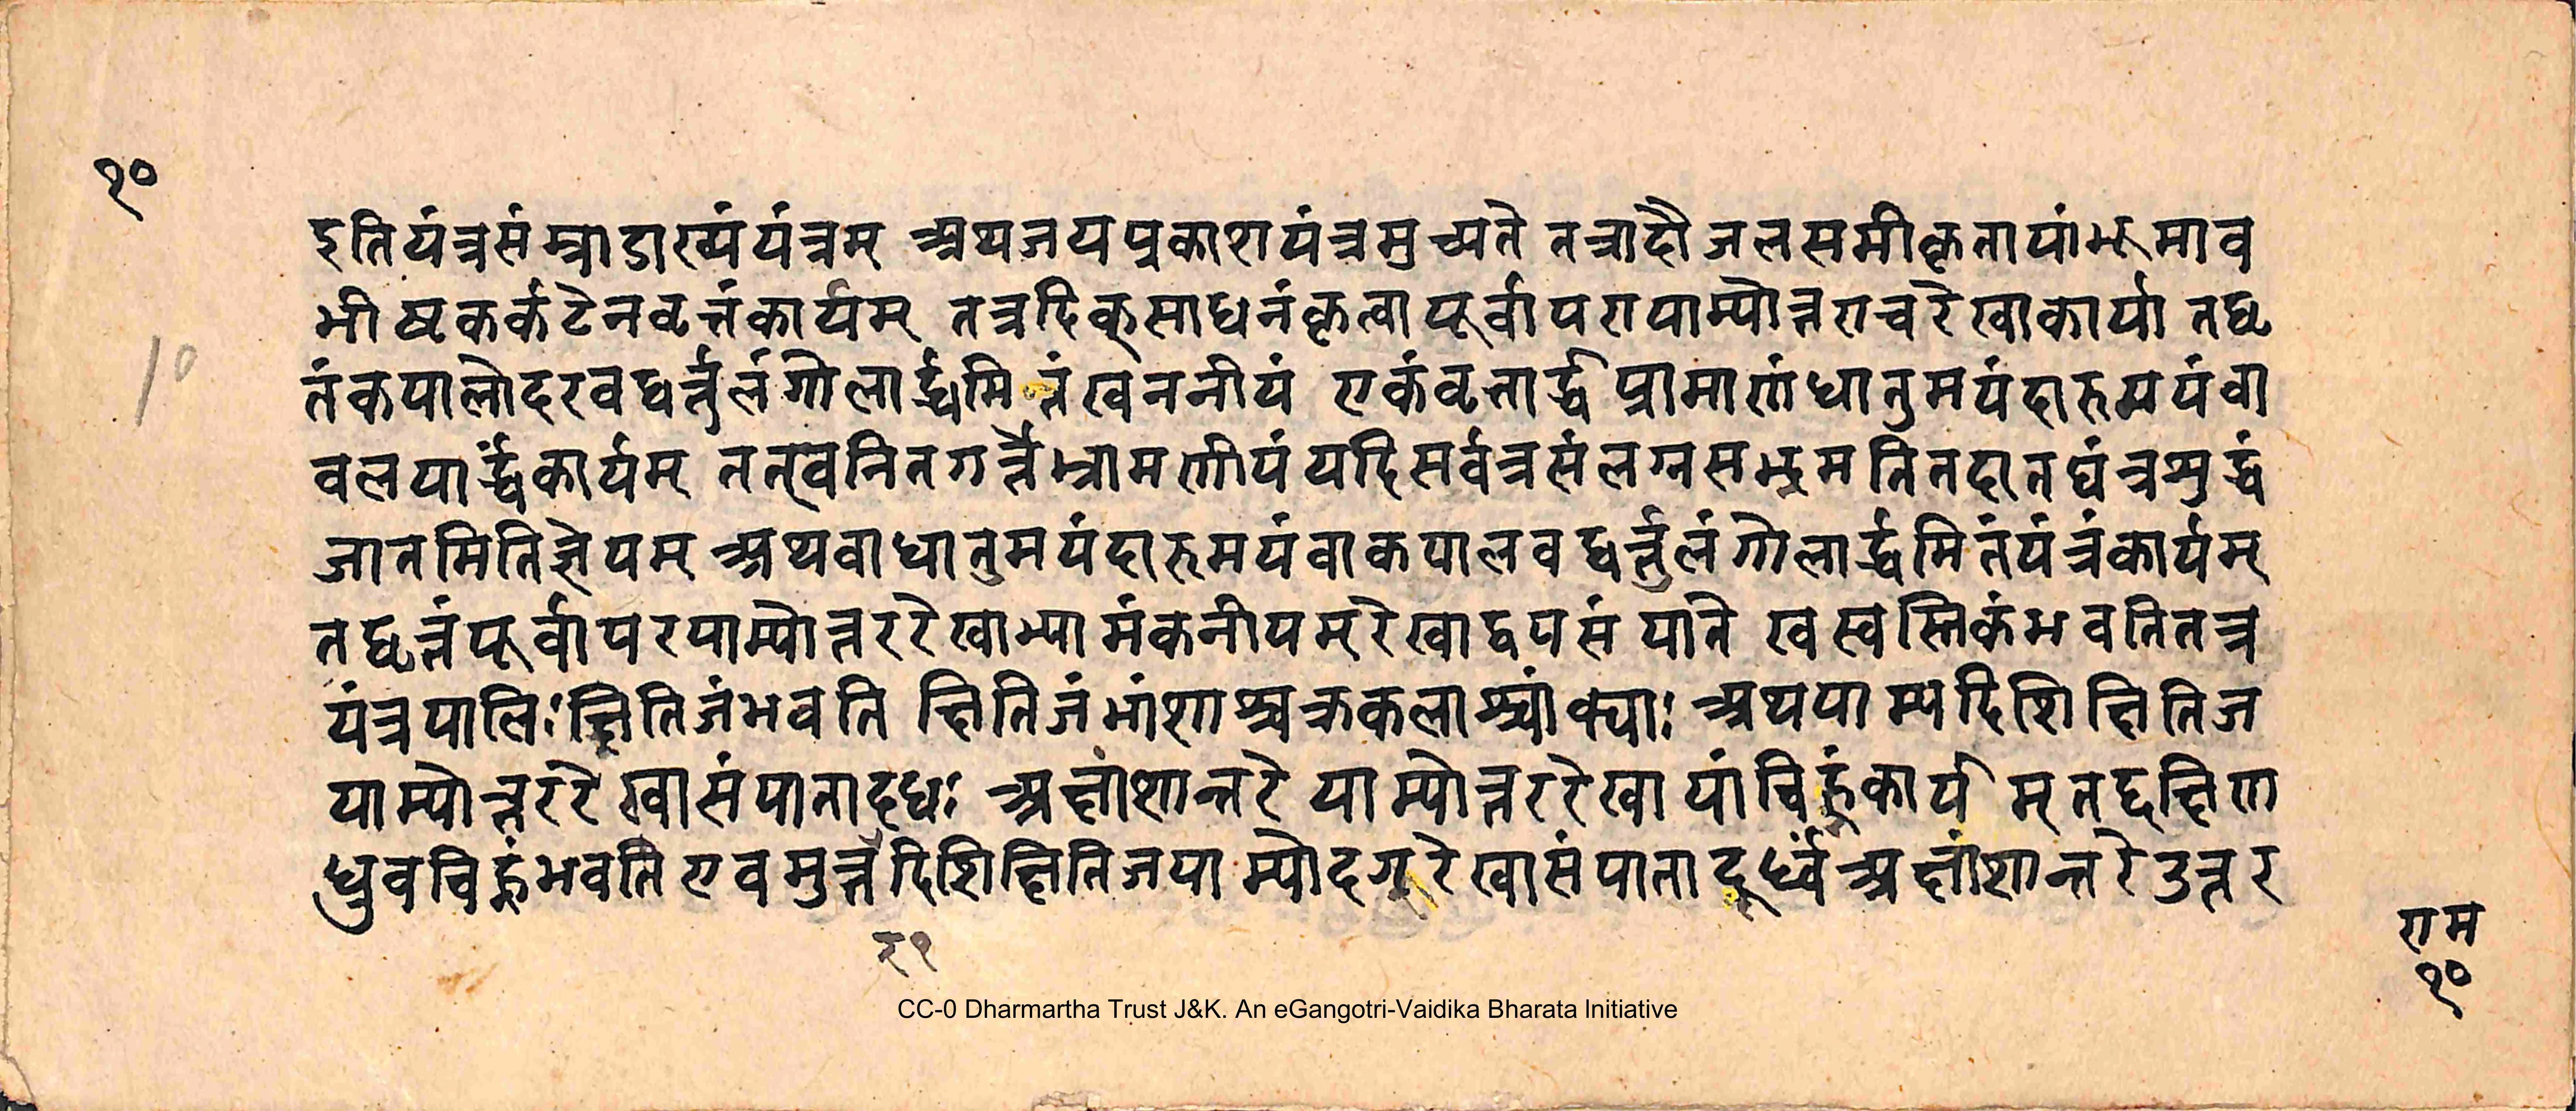 १०
इतियंत्रसंम्राडाख्यंयंत्रम् अथजयप्रकाशयंत्रमुच्यते तत्रादौ जलसमीकृतायांभूमाव
भीष्टकर्कटेनवृत्तंकार्यम् तत्रदिक्साधनंकृत्वा पूर्वापरायाम्योत्तराचरेखाकार्या तद्वृ
10
तंकपालोदरवद्वर्त्तुलंगोलार्द्धमितंखननीयं एकंवृत्तार्द्धप्रामाणंधातुमयंदारुमयंवा
वलयार्द्धंकार्यम् तत्खनितगर्त्तेभ्रामणीयंयदिसर्वत्रसंलग्नसभ्रमतितदातद्यंत्रशुद्धं
जातमितिज्ञेयम् अथवाधातुमयंदारुमयंवाकपालवद्वर्त्तुलंगोलार्द्धमितंयंत्रंकार्यम्
तद्वृर्त्तंपूर्वापरयाम्योत्तररेखाभ्यामंकनीयम्रेखाद्वयसंपाते खस्वस्तिकंभवतितत्र
यंत्रपालिःक्षितिजंभवति क्षितिजंभांशाश्चक्रकलाश्चांक्याः अथयाम्यदिशिक्षितिज
याम्योत्तररेखासंपातादधः अक्षांशान्तरे याम्योत्तररेखायांचिह्नंकार्यम् तद्दक्षिण
ध्रुवचिह्नंभवति एवमुत्तदिशिक्षितिजयाम्योदग्रेखासंपातादूर्ध्वंअक्षांशान्तरेउत्तर
र९
राम
१०
CC-0 Dharmartha Trust J&K. An eGangotri-Vaidika Bharata Initiative